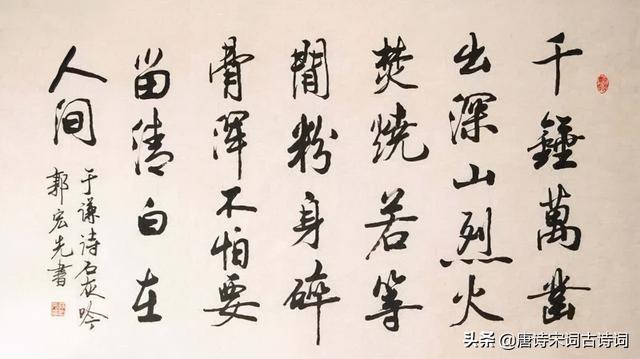 千錘萬凿
出深山烈火
焚燒若等
閒粉身碎
骨渾不怕要
留清白在
人间
于谦诗石灰吟
郭宏先書
头条@唐诗宋词古诗词